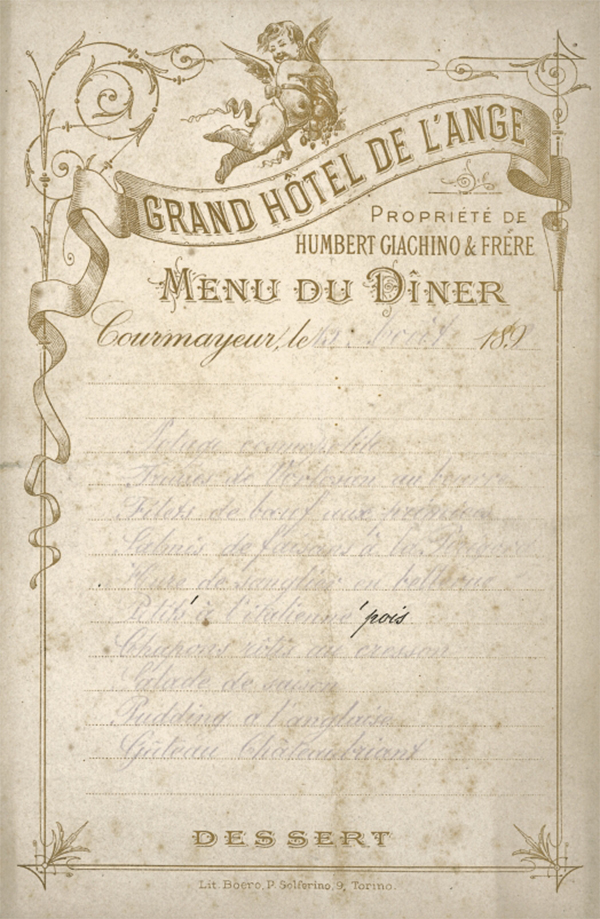 GRAND HÔTEL DE L'ANGE
PROPRIÉTÉ DE
HUMBERT GIACHINO & FRÉRE
MENU DU DÎNER
Courmayeur, le Août 189
Potage
Truites de au beurre
Filets de bœuf aux
Salmis de faisans à la
Hure de sanglier en bellevue
Petits à l'italienne pois
Chapons rôtis au cresson
Salade de saison
Pudding a l'anglaise
Gâteau Chateaubriant
DESSERT
Lit. Boero, P. Solferino, 9, Torino.